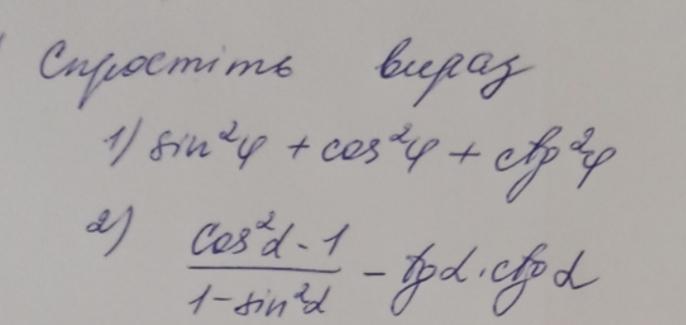 Спростіть вираз
1) sin²φ + cos²φ + ctg²φ
2) (cos²α - 1)/(1 - sin²α) - tgα · ctgα